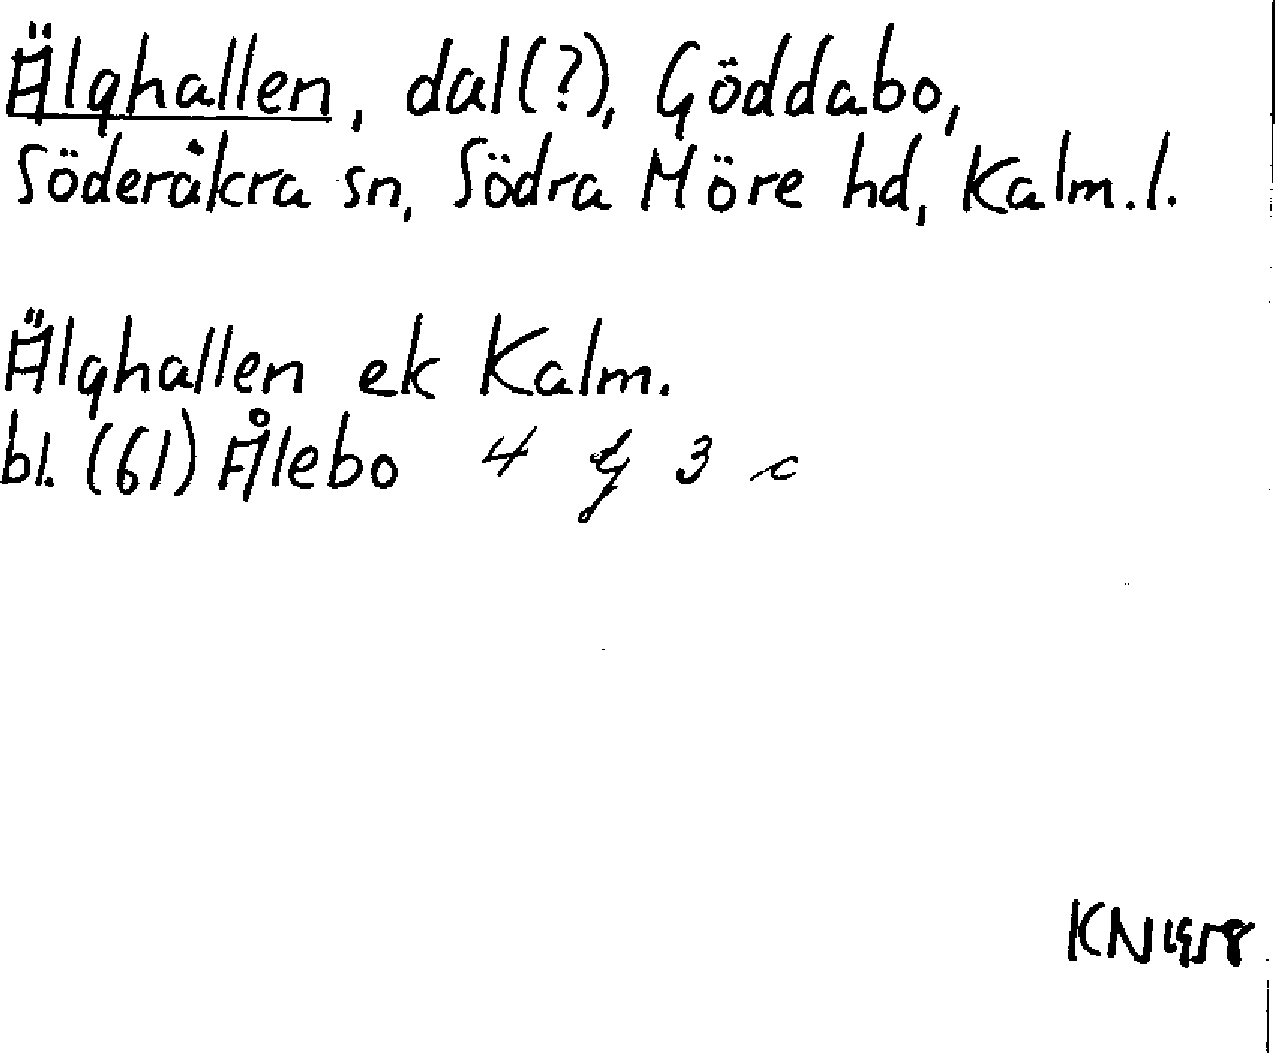 Älghallen, dal(?), Göddabo,
Söderåkra sn, Södra Möre hd, Kalm.l.
Älghallen ek Kalm.
bl. (61) Ålebo 4 g 3 c
KN 1958